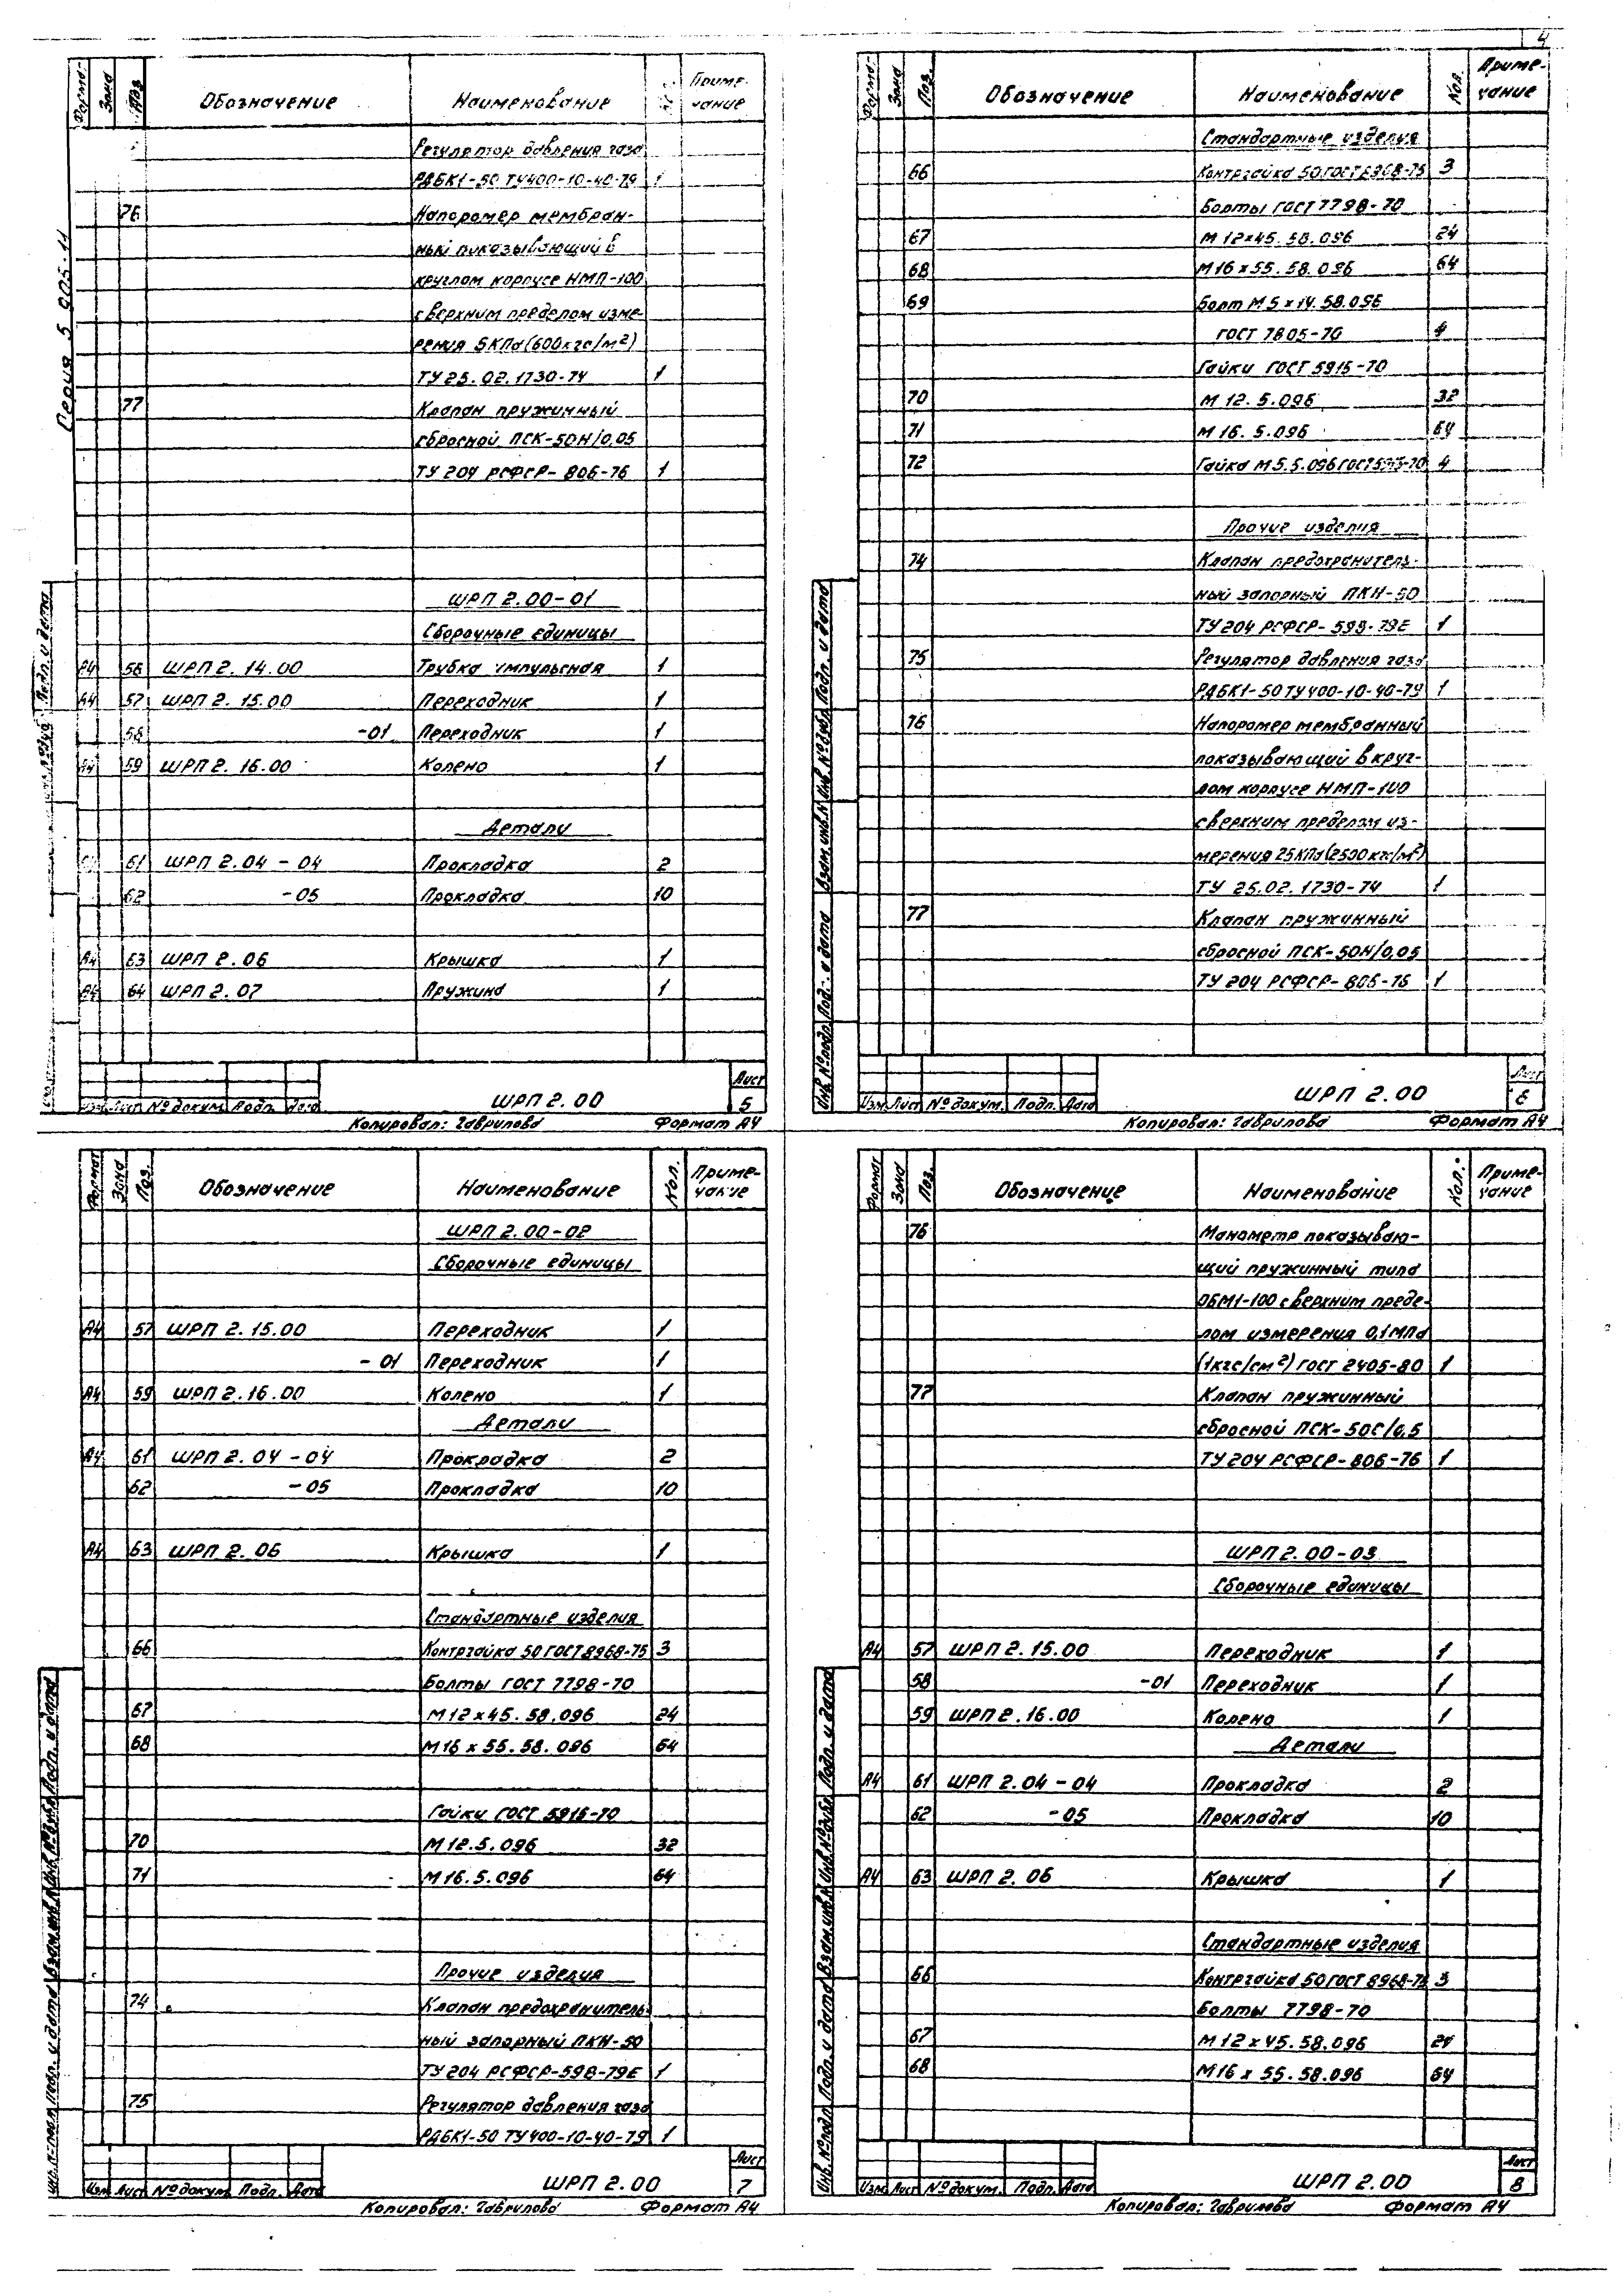 4
Серия 5.905-11
Формат Зона Поз. Обозначение Наименование Приме-
чание
Регулятор давления газа
РДБК1-50 ТУ400-10-40-79 1
76 Напоромер мембран-
ный показывающий в
круглом корпусе НМП-100
с верхним пределом изме-
рения 5КПа (600кгс/м²)
ТУ 25.02.1730-74 1
77 Клапан пружинный
сбросной ПСК-50Н/0,05
ТУ 204 РСФСР-806-76 1
ШРП 2.00-01
Сборочные единицы
А4 56 ШРП 2.14.00 Трубка импульсная 1
А4 57 ШРП 2.15.00 Переходник 1
58 -01 Переходник 1
А4 59 ШРП 2.16.00 Колено 1
Детали
61 ШРП 2.04-04 Прокладка 2
62 -05 Прокладка 10
А4 63 ШРП 2.06 Крышка 1
А4 64 ШРП 2.07 Пружина 1
Подп. и дата
Изм. Лист № докум. Подп. Дата ШРП 2.00 Лист 5
Копировал: Гаврилова Формат А4
Формат Зона Поз. Обозначение Наименование Кол. Приме-
чание
Стандартные изделия
66 Контргайка 50 ГОСТ 8968-75 3
Болты ГОСТ 7798-70
67 М12×45.58.096 24
68 М16×55.58.096 64
69 Болт М5×14.58.096
ГОСТ 7805-70 4
Гайки ГОСТ 5915-70
70 М12.5.096 32
71 М16.5.096 64
72 Гайка М5.5.096 ГОСТ 5915-70 4
Прочие изделия
74 Клапан предохранитель-
ный запорный ПКН-50
ТУ204 РСФСР-598-79Е 1
75 Регулятор давления газа
РДБК1-50 ТУ400-10-40-79 1
76 Напоромер мембранный
показывающий в круг-
лом корпусе НМП-100
с верхним пределом из-
мерения 25КПа (2500кгс/м²)
ТУ 25.02.1730-74 1
77 Клапан пружинный
сбросной ПСК-50Н/0,05
ТУ 204 РСФСР-806-76 1
Инв. № подл. Подп. и дата Взам. инв. № Инв. № дубл. Подп. и дата
Изм. Лист № докум. Подп. Дата ШРП 2.00 Лист 6
Копировал: Гаврилова Формат А4
Формат Зона Поз. Обозначение Наименование Кол. Приме-
чание
ШРП 2.00-02
Сборочные единицы
А4 57 ШРП 2.15.00 Переходник 1
-01 Переходник 1
А4 59 ШРП 2.16.00 Колено 1
Детали
А4 61 ШРП 2.04-04 Прокладка 2
62 -05 Прокладка 10
А4 63 ШРП 2.06 Крышка 1
Стандартные изделия
66 Контргайка 50 ГОСТ 8968-75 3
Болты ГОСТ 7798-70
67 М12×45.58.096 24
68 М16×55.58.096 64
Гайки ГОСТ 5915-70
70 М12.5.096 32
71 М16.5.096 64
Прочие изделия
74 Клапан предохранитель-
ный запорный ПКН-50
ТУ204 РСФСР-598-79Е 1
75 Регулятор давления газа
РДБК1-50 ТУ400-10-40-79 1
Инв. № подл. Подп. и дата Взам. инв. № Инв. № дубл. Подп. и дата
Изм. Лист № докум. Подп. Дата ШРП 2.00 Лист 7
Копировал: Гаврилова Формат А4
Формат Зона Поз. Обозначение Наименование Кол. Приме-
чание
76 Манометр показываю-
щий пружинный типа
ОБМ1-100 с верхним преде-
лом измерения 0,1МПа
(1кгс/см²) ГОСТ 2405-80 1
77 Клапан пружинный
сбросной ПСК-50С/0,5
ТУ204 РСФСР-806-76 1
ШРП 2.00-03
Сборочные единицы
А4 57 ШРП 2.15.00 Переходник 1
58 -01 Переходник 1
59 ШРП 2.16.00 Колено 1
Детали
А4 61 ШРП 2.04-04 Прокладка 2
62 -05 Прокладка 10
А4 63 ШРП 2.06 Крышка 1
Стандартные изделия
66 Контргайка 50 ГОСТ 8968-75 3
Болты 7798-70
67 М12×45.58.096 24
68 М16×55.58.096 64
Инв. № подл. Подп. и дата Взам. инв. № Инв. № дубл. Подп. и дата
Изм. Лист № докум. Подп. Дата ШРП 2.00 Лист 8
Копировал: Гаврилова Формат А4